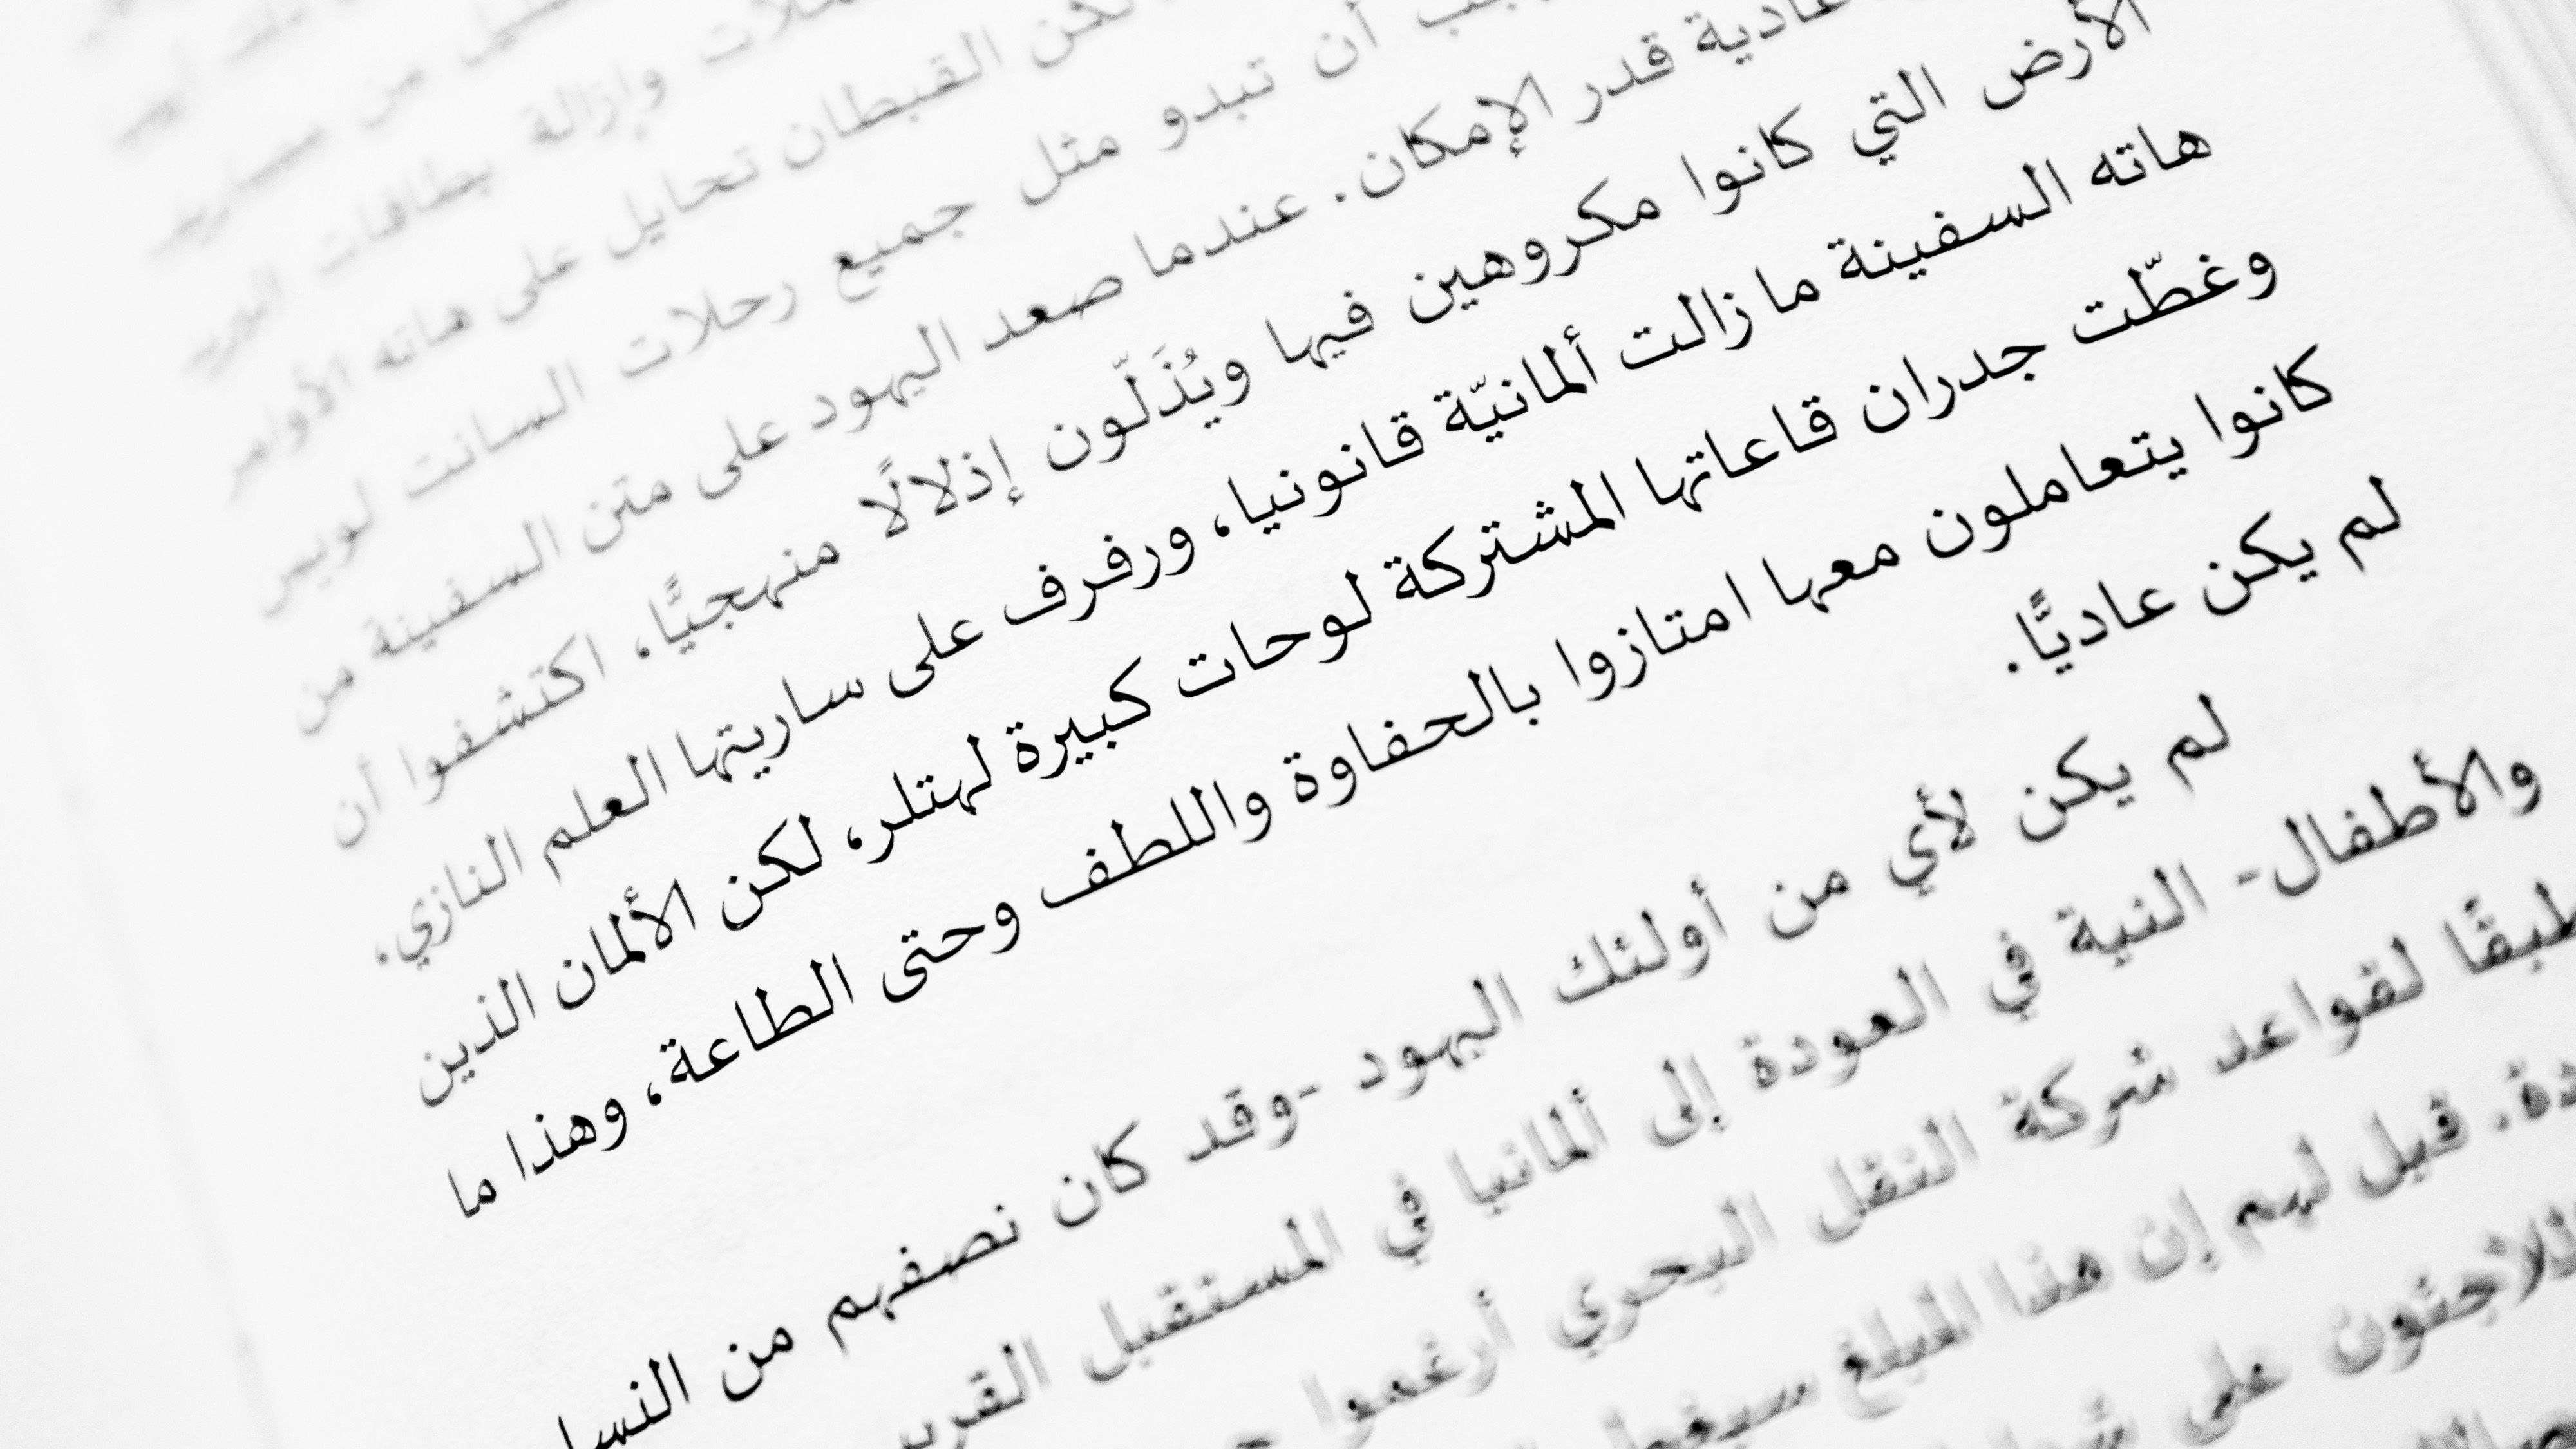 من
وإزالة بطاقات البريد
لكن القبطان تحايل على هاته الأوامر
أن تبدو مثل جميع رحلات السانت لويس
عادية قدر الإمكان. عندما صعد اليهود على متن السفينة من
الأرض التي كانوا مكروهين فيها ويُذَلّون إذلالًا منهجيًّا، اكتشفوا أن
هاته السفينة ما زالت ألمانيّة قانونيا، ورفرف على ساريتها العلم النازي،
وغطّت جدران قاعاتها المشتركة لوحات كبيرة لهتلر، لكن الألمان الذين
كانوا يتعاملون معها امتازوا بالحفاوة واللطف وحتى الطاعة، وهذا ما
لم يكن عاديًّا.
لم يكن لأي من أولئك اليهود -وقد كان نصفهم من
والأطفال- النية في العودة إلى ألمانيا في المستقبل
طبقًا لقواعد شركة النقل البحري أرغموا
قيل لهم إن هذا المبلغ
على